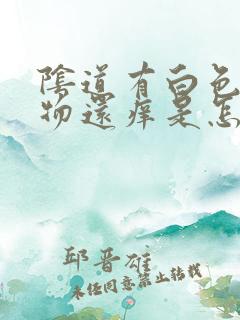 陰道有白色
物還痒是怎
邱晋雄
未经同意禁止转载